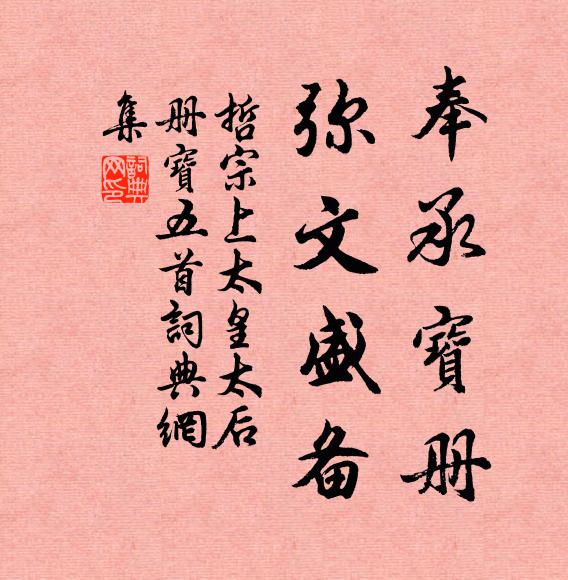 奉承寶册
弥文盛备
哲宗上太皇太后
册寶五首詞典網
集
詞典網印